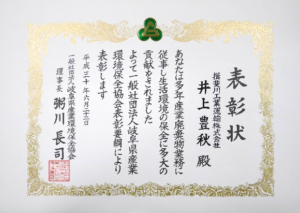 表彰状
揖斐川工業運輸株式会社
井上豊秋 殿
あなたは多年産業廃棄物業務に
従事し生活環境の保全に多大の
貢献をされました
よって一般社団法人岐阜県産業
環境保全協会表彰要綱により
表彰します
平成三十年六月二十二日
一般社団法人岐阜県産業環境保全協会
理事長 粥川長司